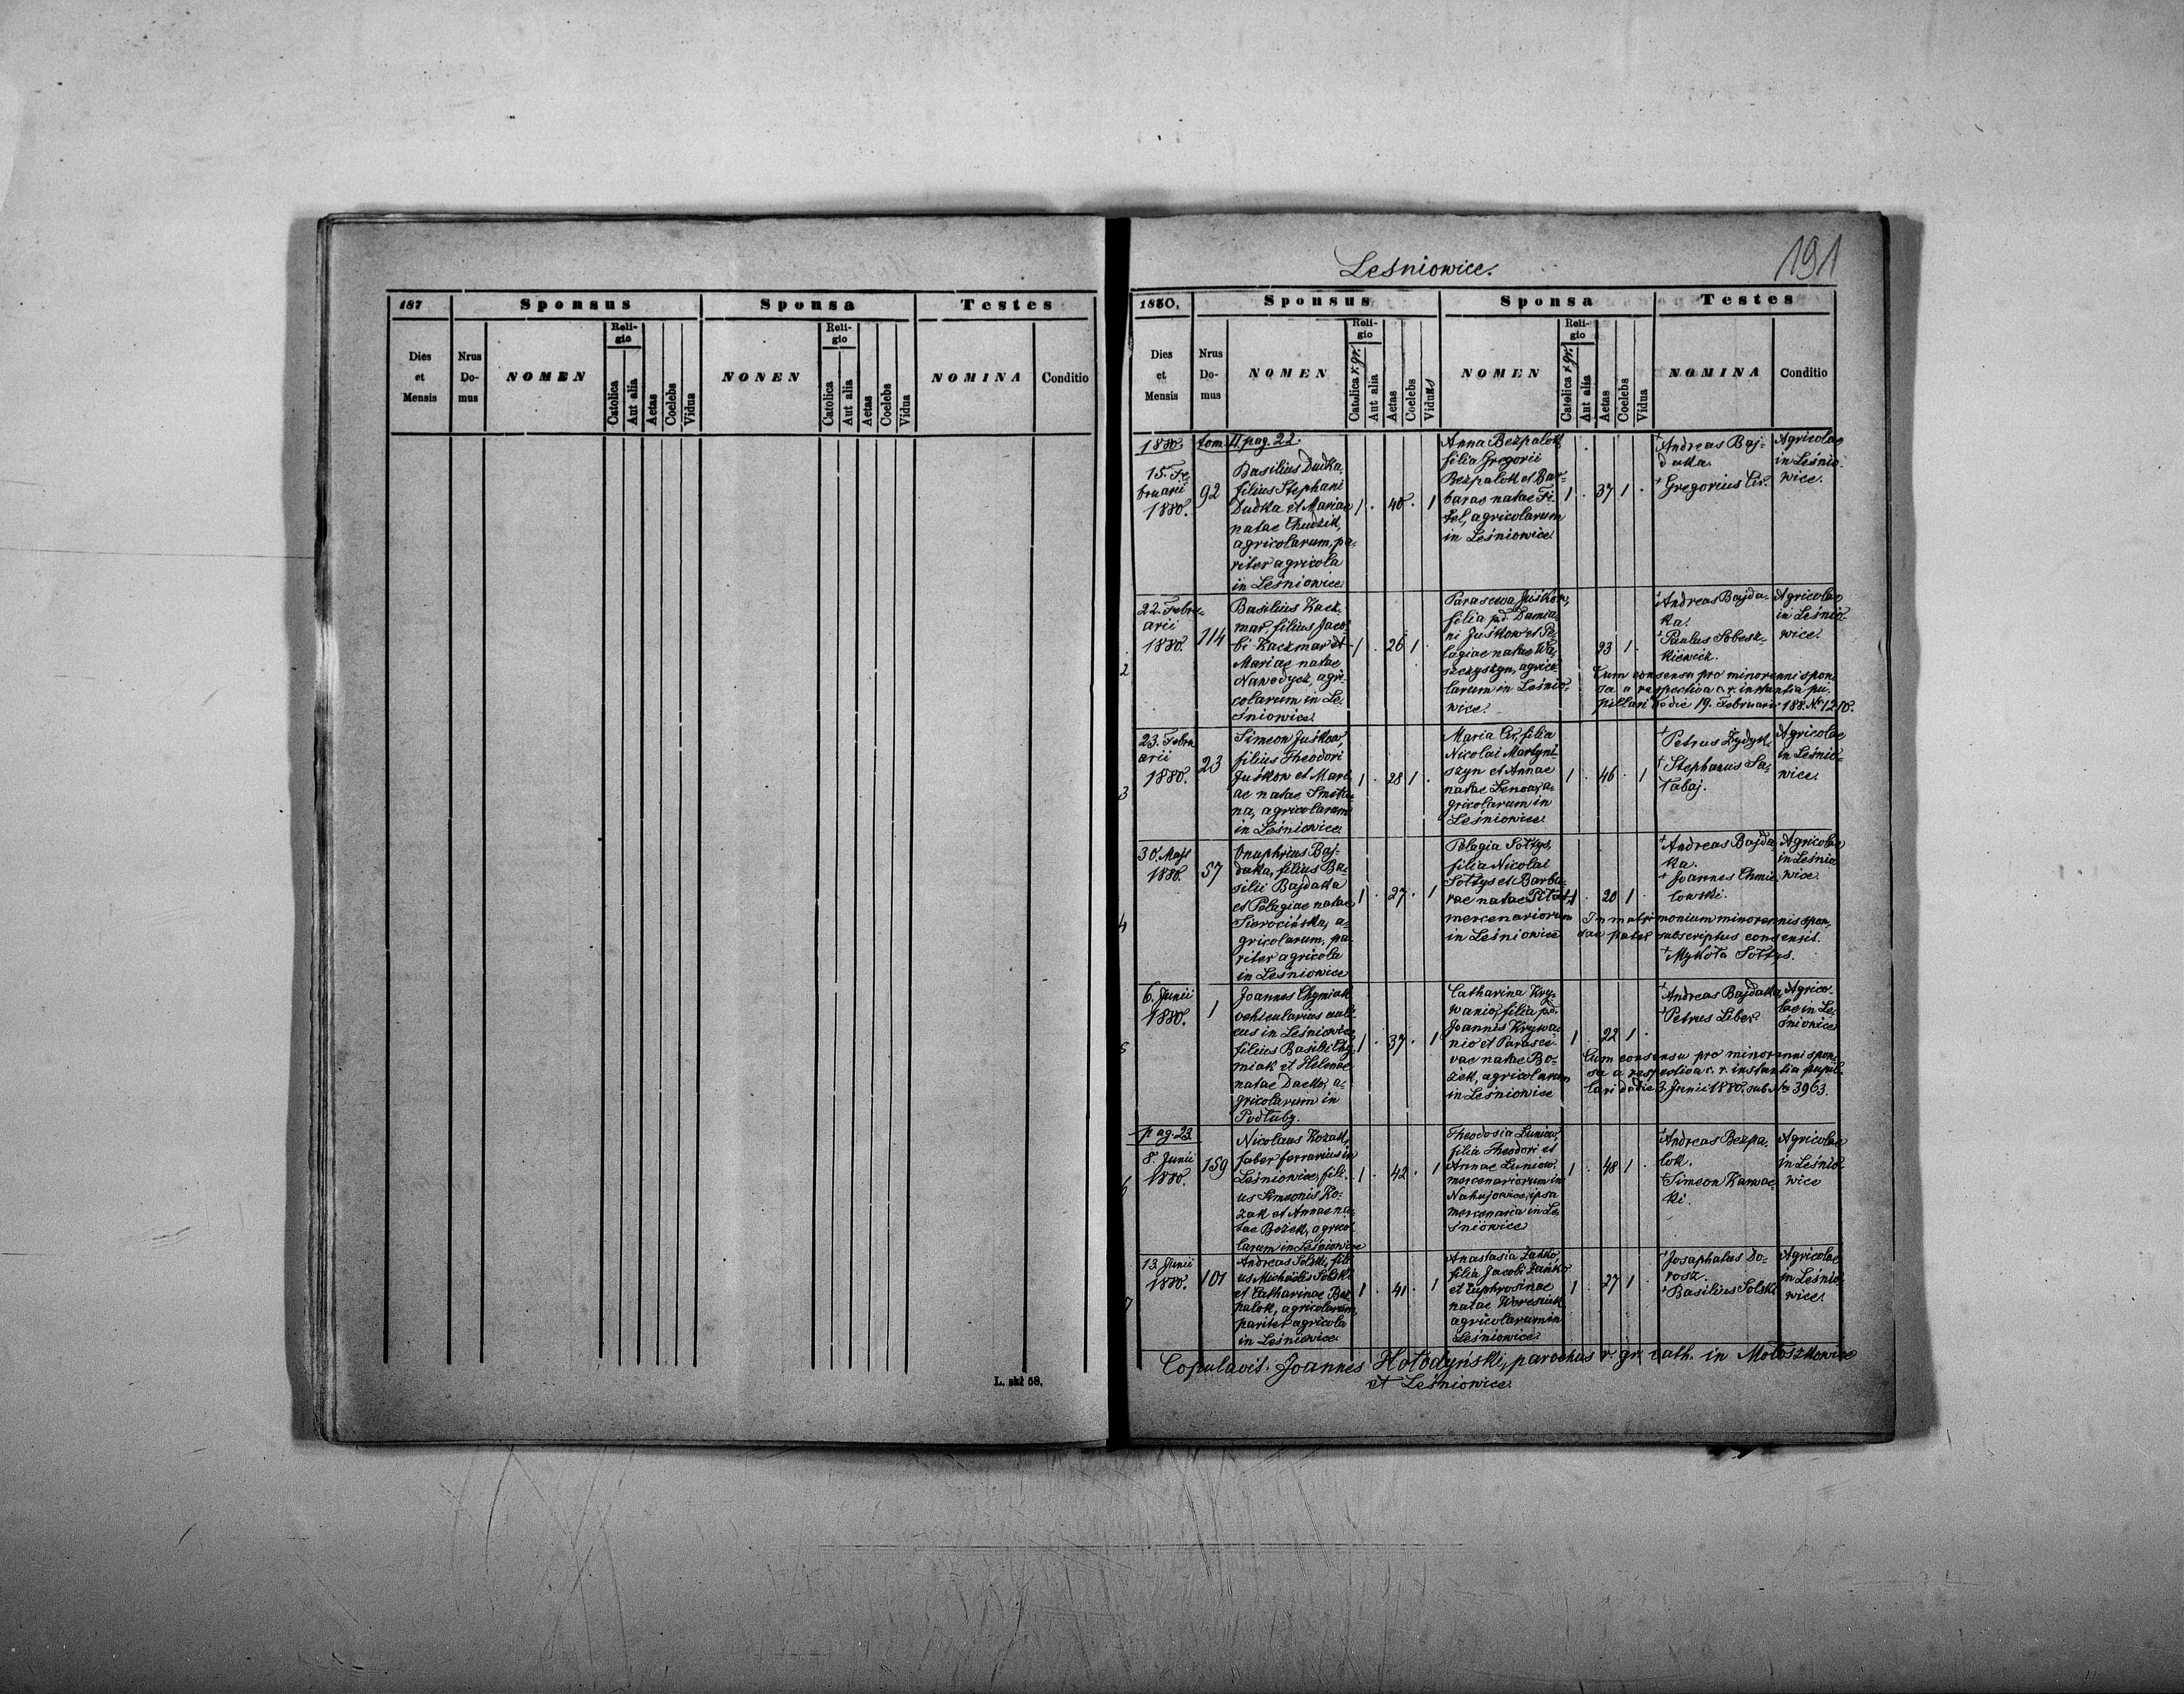 Leśniowice.
191
187
Sponsus
Sponsa
Testes
Dies et Mensis
Nrus Do- mus
NOMEN
Reli- gio
Catolica
Aut alia
Aetas
Coelebs
Vidua
NONEN
Reli- gio
Catolica
Aut alia
Aetas
Coelebs
Vidua
NOMINA
Conditio
L. skł 58.
1880.
Sponsus
Sponsa
Testes
Dies et Mensis
Nrus Do- mus
NOMEN
Reli- gio
Catolica r. gr.
Aut alia
Aetas
Coelebs
Viduus
NOMEN
Reli- gio
Catolica r. gr.
Aut alia
Aetas
Coelebs
Vidua
NOMINA
Conditio
1880. tom. II pag. 22.
15. Fe-
bruarii
1880.
92
Basilius Dudka,
filius Stephani
Dudka et Mariae
natae Chudzik,
agricolarum, pa-
riter agricola
in Leśniowice
1 . 40 . 1
Anna Bezpalok,
filia Gregorii
Bezpalok et Bar-
barae natae
agricolarum
in Leśniowice.
1 . 37 1 .
+Andreas Baj-
daka.
+Gregorius Cir.
Agricolae
in Leśnio-
wice.
2
22. Febru-
arii
1880.
114
Basilius Kacz-
mar, filius Jaco-
bi Kaczmar et
Mariae natae
Nawodycz, agri-
colarum in Le-
śniowice.
1 . 26 1 .
Parascewa Juśkow,
filia p.d. Damia-
ni Juśkow et Pe-
lagiae natae Wa-
szczyszyn, agrico-
larum in Leśnio-
wice.
23 1 .
+Andreas Bajda-
ka.
+Paulus Sobesz-
kiewicz.
Agricolae
in Leśnio-
wice.
Cum consensu pro minorenni spon-
sa a respectiva c. r. instantia pu-
pillari de die 19. Februarii 188. No 1210.
3
23. Febru
arii
1880.
23
Simeon Juśkow,
filius Theodori
Juśkow et Mari-
ae natae Smeta-
na, agricolarum
in Leśniowice.
1 . 28 1 .
Maria Cir, filia
Nicolai Martyni-
szyn et Annae
natae a-
gricolarum in
Leśniowice.
1 . 46 . 1
+Petrus Zydyk.
+Stephanus Sa-
łabaj.
Agricolae
in Leśnio-
wice.
4
30. Maji
1880.
57
Onuphrius Baj-
daka, filius Ba-
silii Bajdaka
et Pelagiae natae
Sierocińska, a-
gricolarum, pa-
riter agricola
in Leśniowice
1 . 27 . 1
Pelagia Sołtys,
filia Nicolai
Sołtys et Barba-
rae natae
mercenariorum
in Leśniowice
1 . 20 1 .
+Andreas Bajda-
ka.
+Joannes Chmie-
lowski.
Agricolae
in Leśnio
wice.
In matrimonium minorennis spon-
sae pater subscriptus consensit.
+Mykoła Sołtys.
5
6. Junii
1880.
1
Joannes Chymiak
vehicularius auli-
cus in Leśniowice
filius Basilii Chy-
miak et Helenae
natae Dacko, a-
gricolarum in
Podłuby.
1 . 37 . 1
Catharina Kry-
wanio, filia p.d.
Joannis Krywa-
nio et Parasce-
vae natae Bo-
żek, agricolarum
in Leśniowice
1 . 22 1 .
+Andreas Bajdaka
+Petrus Liber.
Agrico-
lae in Le-
śniowice
Cum consensu pro minorenni spon-
sa a respectiva c. r. instantia pupil-
lari de die 3. Junii 1880. sub No 3963.
pag. 23
6
8. Junii
1880.
159
Nicolaus Kozak,
faber ferrarius in
Leśniowice, fili-
us Simeonis Ko-
zak et Annae na-
tae Bożek, agrico-
larum in Leśniowice
1 . 42 . 1
Theodosia Luniow,
filia Theodori et
Annae Luniow
mercenariorum in
Nahujowice, ipsa
mercenaria in Le-
śniowice
1 . 48 1 .
+Andreas Bezpa-
lok.
+Simeon Karwac-
ki.
Agricolae
in Leśnio-
wice
7
13. Junii
1880.
101
Andreas Solski, fili-
us Michaëlis Solski
et Catharinae Bez-
palok, agricolarum,
pariter agricola
in Leśniowice.
1 . 41 . 1
Anastasia Zańko,
filia Jacobi Zańko
et Euphrosinae
natae Woreniuk
agricolarum in
Leśniowice.
1 . 27 1 .
+Josaphatus Do-
rosz.
+Basilius Solski
Agricolae
in Leśnio-
wice.
Copulavit. Joannes Hołodyński, parochus r. gr. cath. in Mołoszkowice
et Leśniowice.